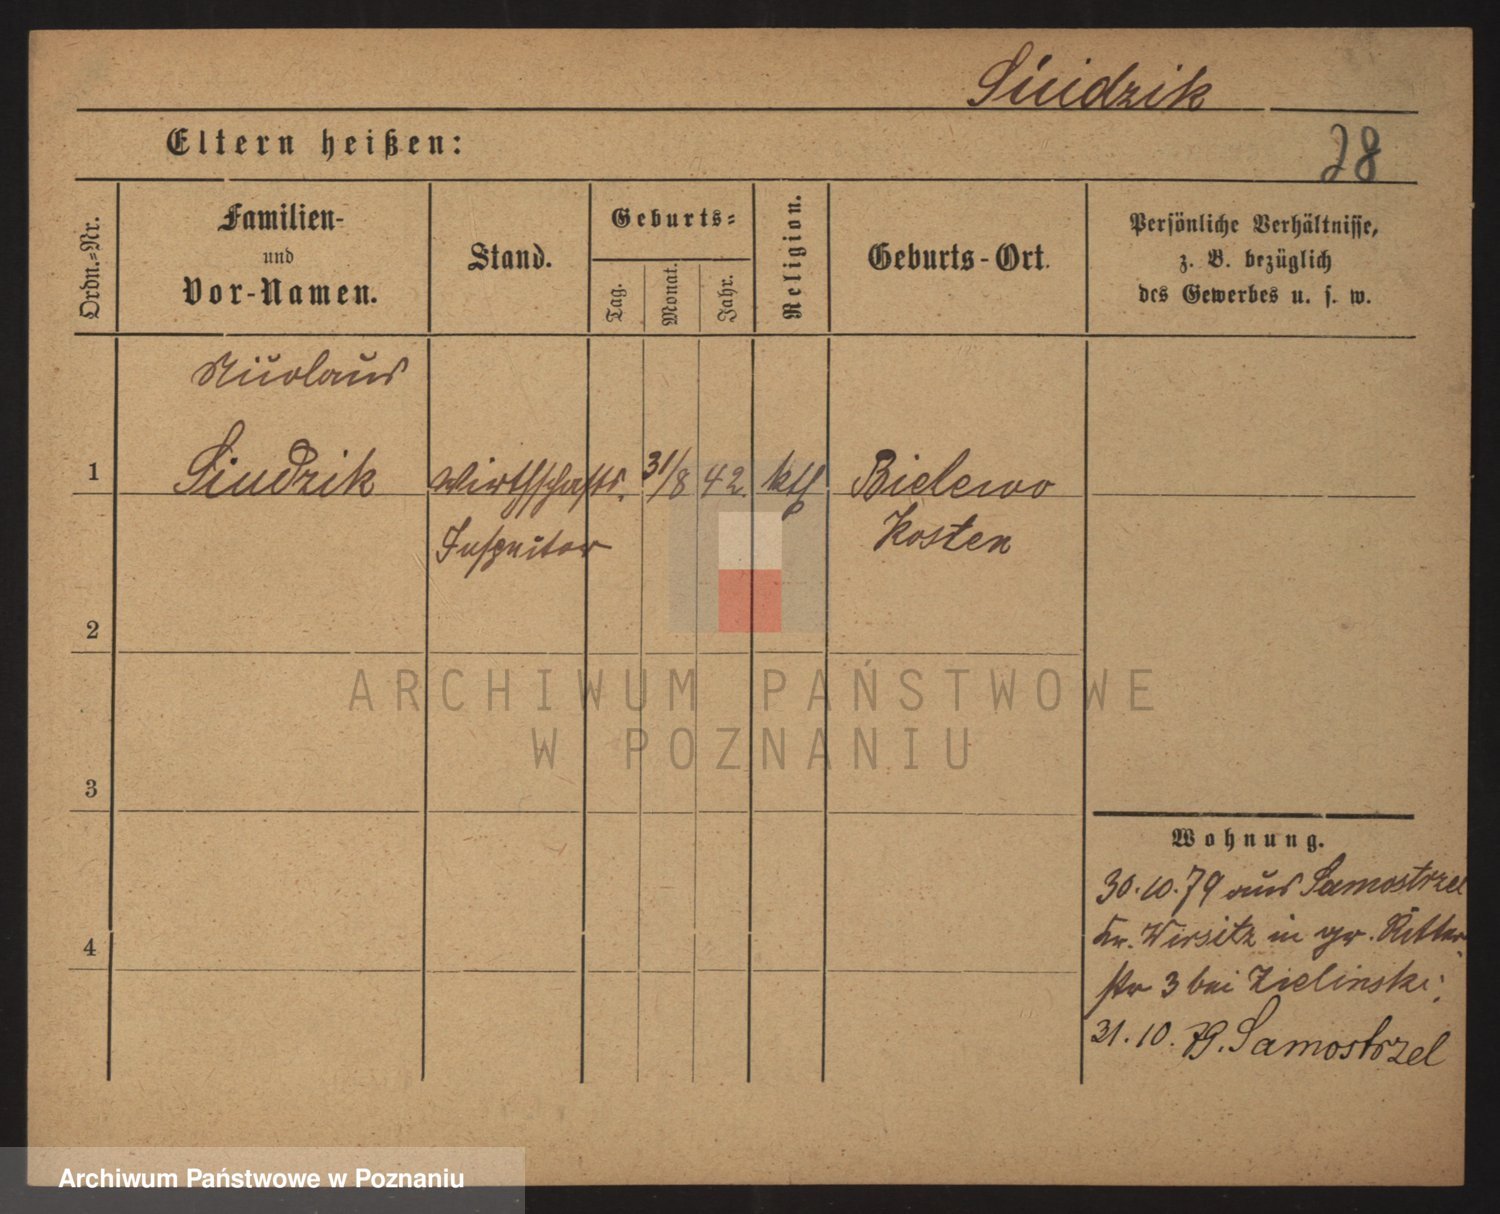 Siudzik
Eltern heißen:
28
Ordn.=Nr.
Familien-
und
Vor-Namen.
Stand.
Geburts=
Tag.
Monat.
Jahr.
Religion.
Geburts-Ort.
Persönliche Verhältnisse,
z. B. bezüglich
des Gewerbes u. s. w.
Nicolaus
1 Siudzik Wirthschafts. 31/8 42. kth Bielewo
Inspector Kosten
2
3
4
Wohnung.
30.10.79 aus Samostrzel
Kr. Wirsitz in gr. Ritter
str 3 bei Zielinski.
31.10.79. Samostrzel
ARCHIWUM PAŃSTWOWE
W POZNANIU
Archiwum Państwowe w Poznaniu